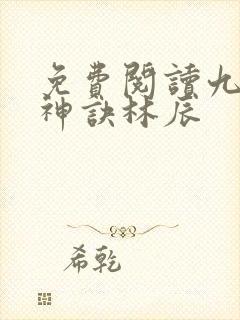 免費閱讀九
神訣林辰
希乾